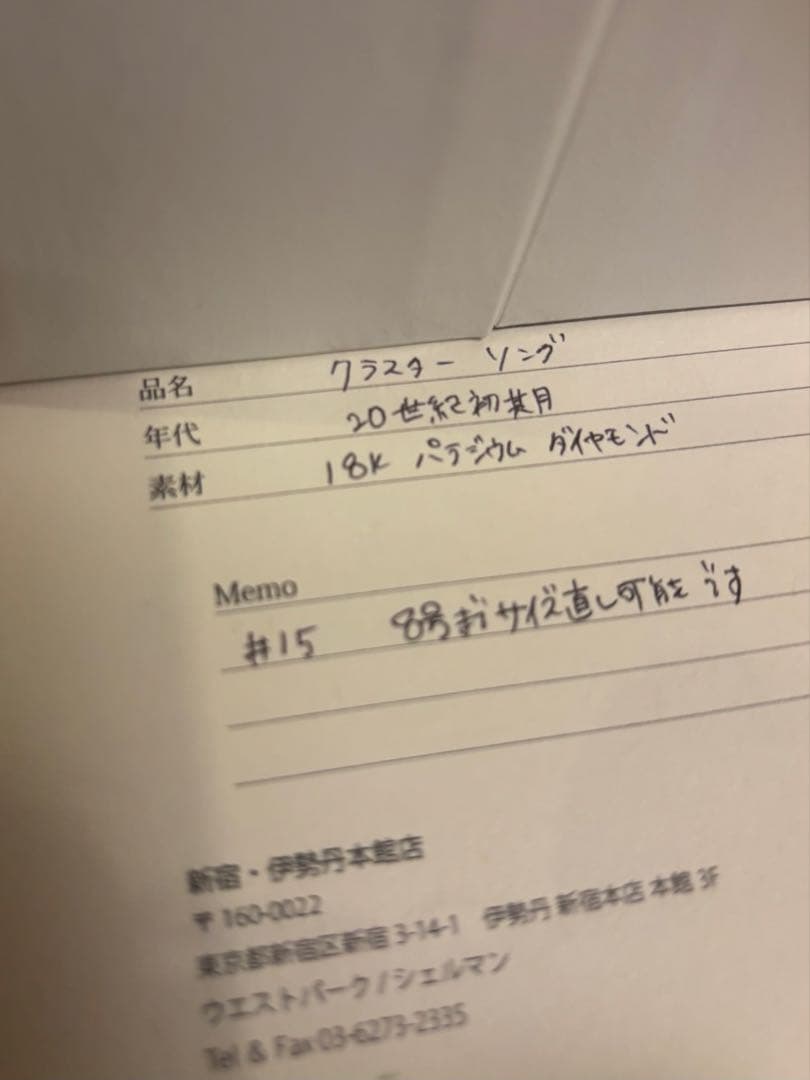 品名 クラスター リング
年代 20世紀初期
素材 18K パラジウム ダイヤモンド
Memo
#15 8号までサイズ直し可能です
新宿・伊勢丹本館店
〒160-0022
東京都新宿区新宿 3-14-1 伊勢丹 新宿本店 本館 3F
ウエストパーク / シェルマン
Tel & Fax 03-6273-2335